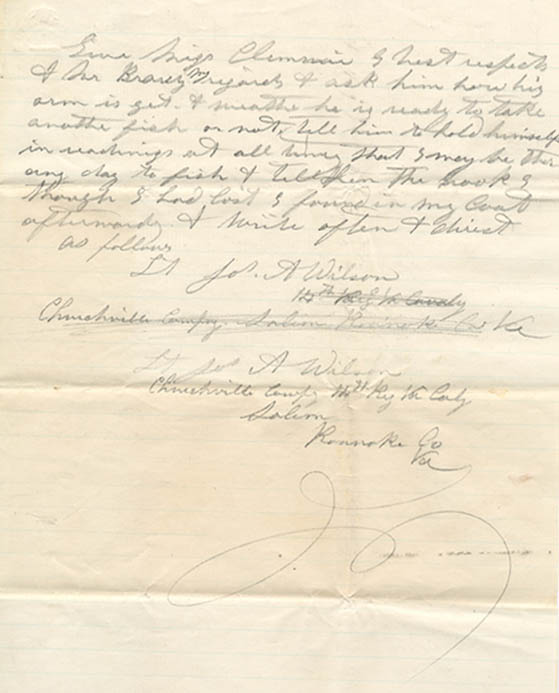 Give Miss Clemmie & best respects
& Mr Brarey regards & ask him how his
arm is get. & weathe he is ready to take
anothe fish or not, tell him to hold himself
in readings at all times that I may be ther
any day to fish & tell him the book I
though I had lost I found in my Coat
afterwards & Write often & direct
as follows
Lt Jos. A Wilson
14th Reg Va Cavaly
Churchville Compy. Salem Roanoke Co Va
Lt Jos A Wilson
Churchville Compy 14th Reg Va Cavly
Salem
Roanoke Co
Va